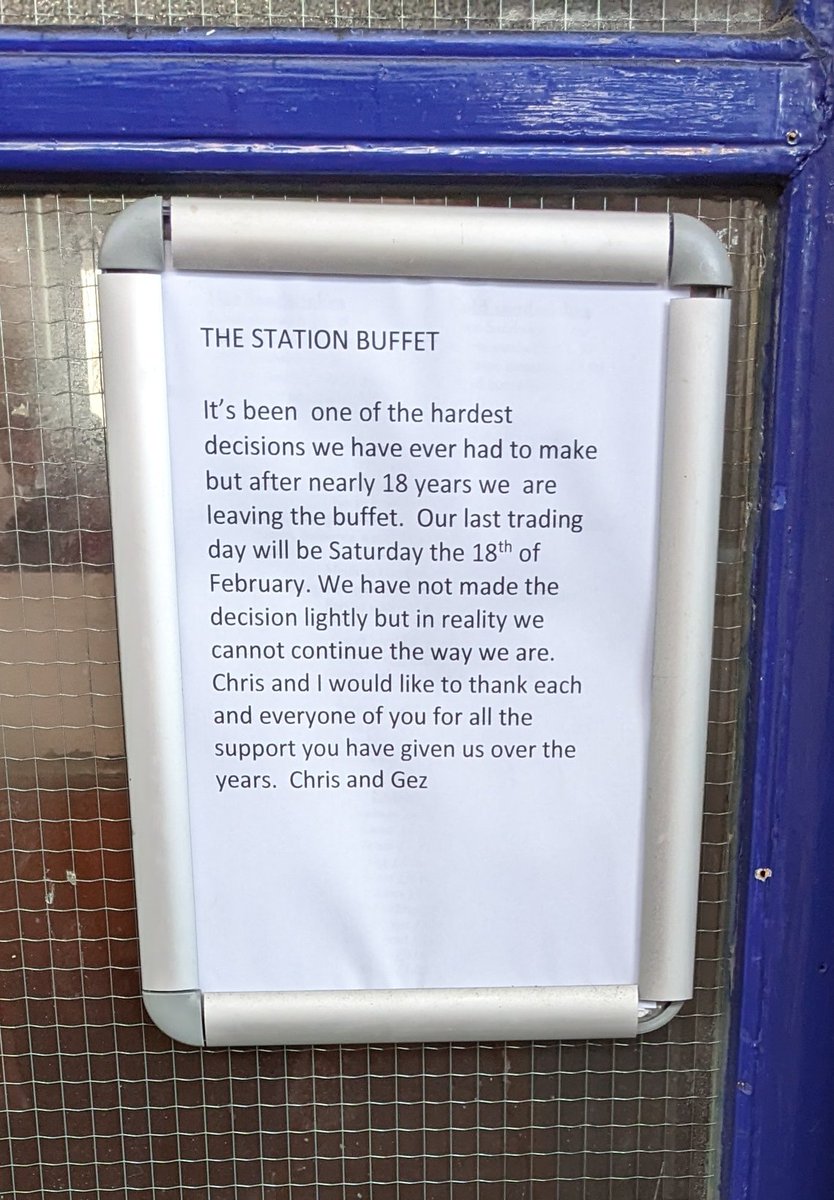 THE STATION BUFFET
It's been  one of the hardest
decisions we have ever had to make
but after nearly 18 years we  are
leaving the buffet.  Our last trading
day will be Saturday the 18th of
February. We have not made the
decision lightly but in reality we
cannot continue the way we are.
Chris and I would like to thank each
and everyone of you for all the
support you have given us over the
years.  Chris and Gez